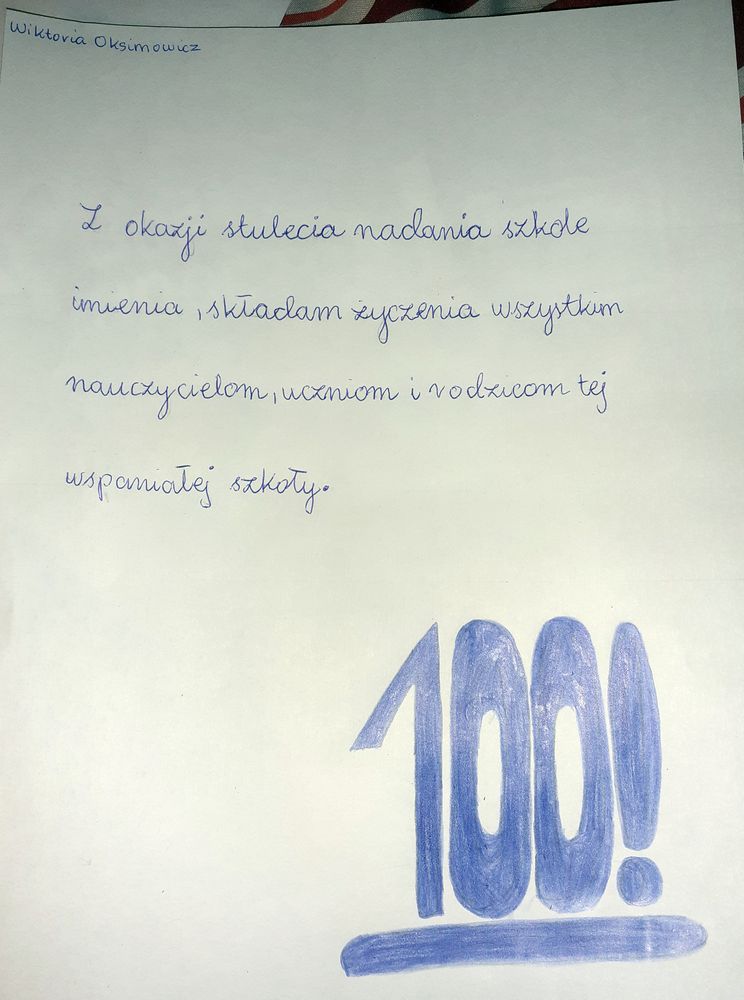 Wiktoria Oksimowicz
Z okazji stulecia nadania szkole
imienia, składam życzenia wszystkim
nauczycielom, uczniom i rodzicom tej
wspaniałej szkoły.
100!